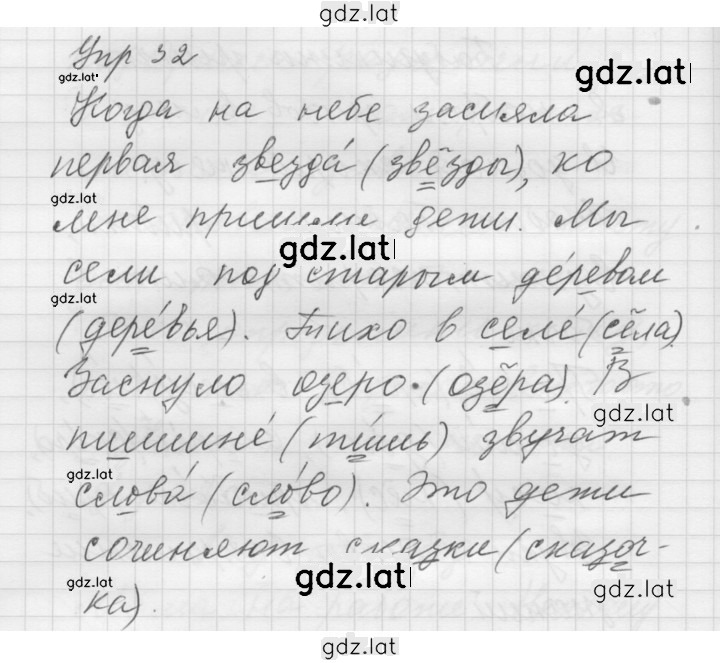 gdz.lat
Упр 32
gdz.lat
gdz.lat
Когда на небе засияла
первая звезда́ (звёзды), ко
gdz.lat
мне пришли дети. Мы
gdz.lat
сели под старым де́ревом
gdz.lat
(дере́вья). Тихо в селе́ (сёла).
Заснуло озеро. (озёра). В
gdz.lat
тишине́ (ти́шь) звучат
gdz.lat
слова́ (сло́во). Это дети
сочиняют сказки (сказоч-
gdz.lat
gdz.lat
gdz.lat
ка).
gdz.lat